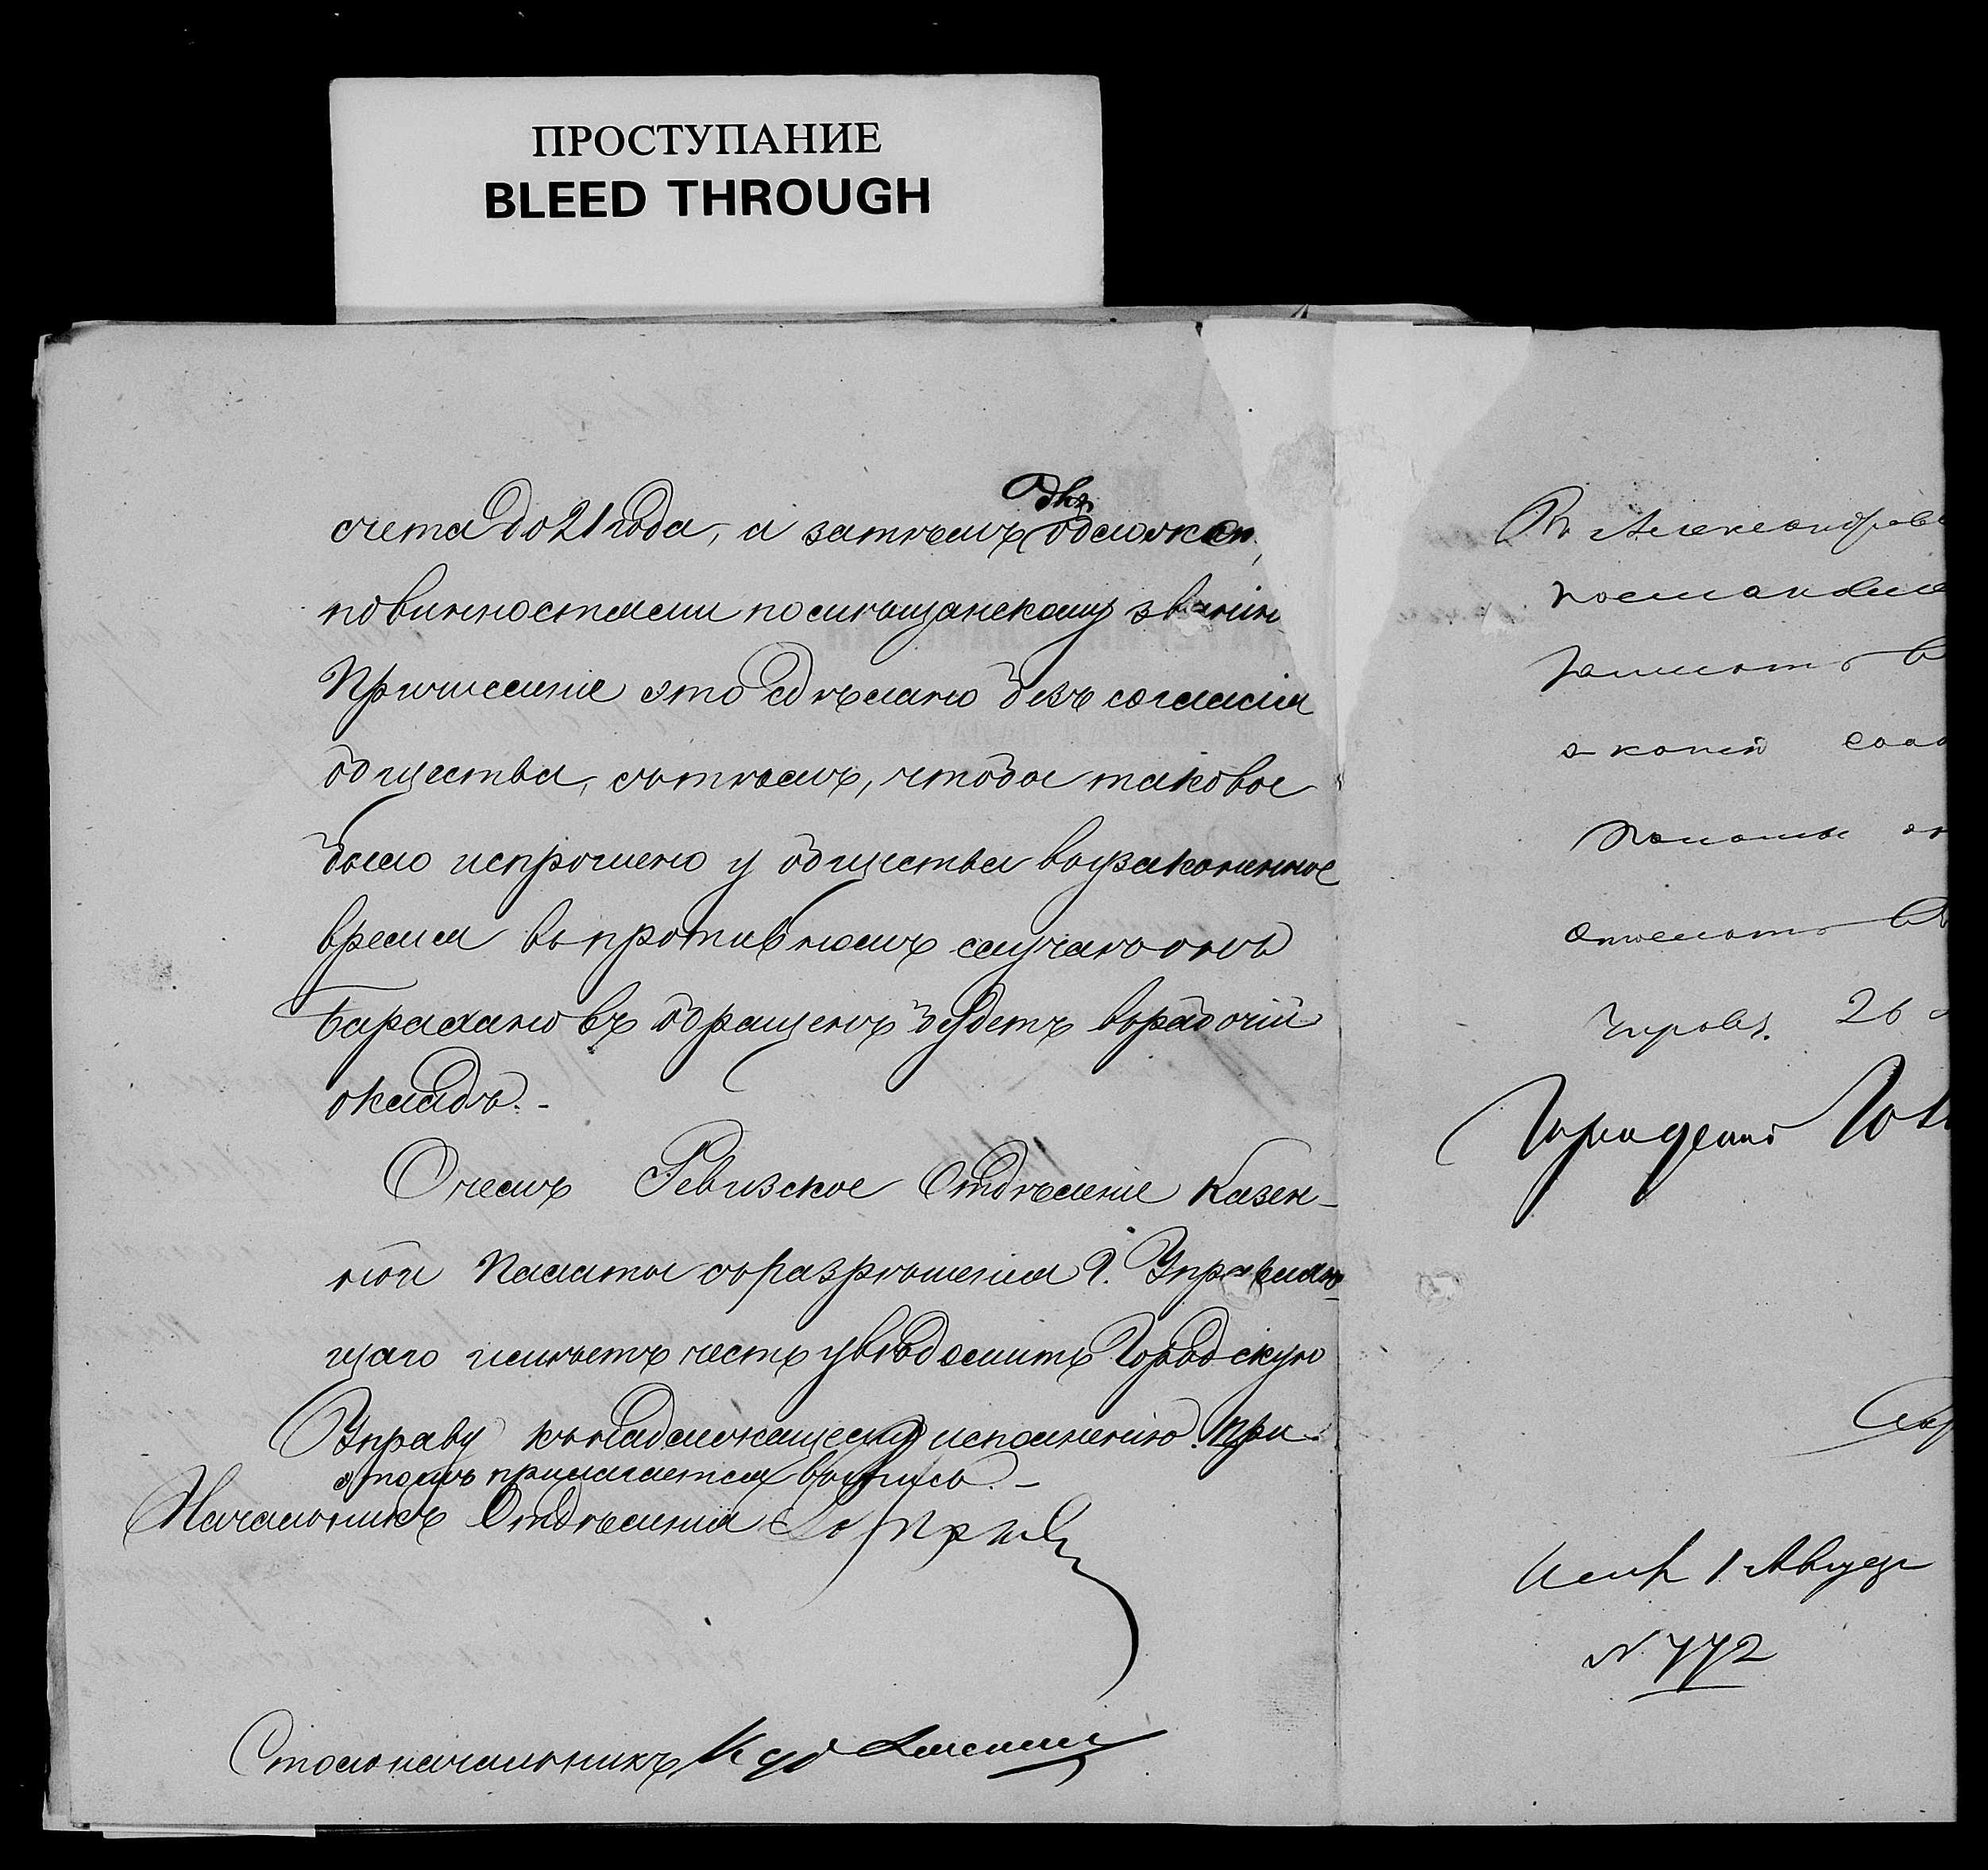 ПРОСТУПАНИЕ
BLEED THROUGH
счета до 21 года, а затѣмъ обложен.
повинностями по мѣщанскому званію
Причисленіе это сдѣлано безъ согласія
общества, съ тѣмъ, чтобы таковое
было испрошено у общества въ узаконенное
время въ противномъ случаѣ онъ
Барахановъ обращенъ будетъ въ рабочій
окладъ. -
О чемъ Ревизское Отдѣленіе Казен-
ной Палаты съ разрѣшенія Г. Управляю-
щаго имѣетъ честь увѣдомить Городскую
Управу къ надлежащему исполненію. При
этомъ прилагается выпись. -
Начальникъ Отдѣленія
Столоначальникъ
Въ Александров
постановле
копей
Палаты
26
Исп 1 Августа
N 772